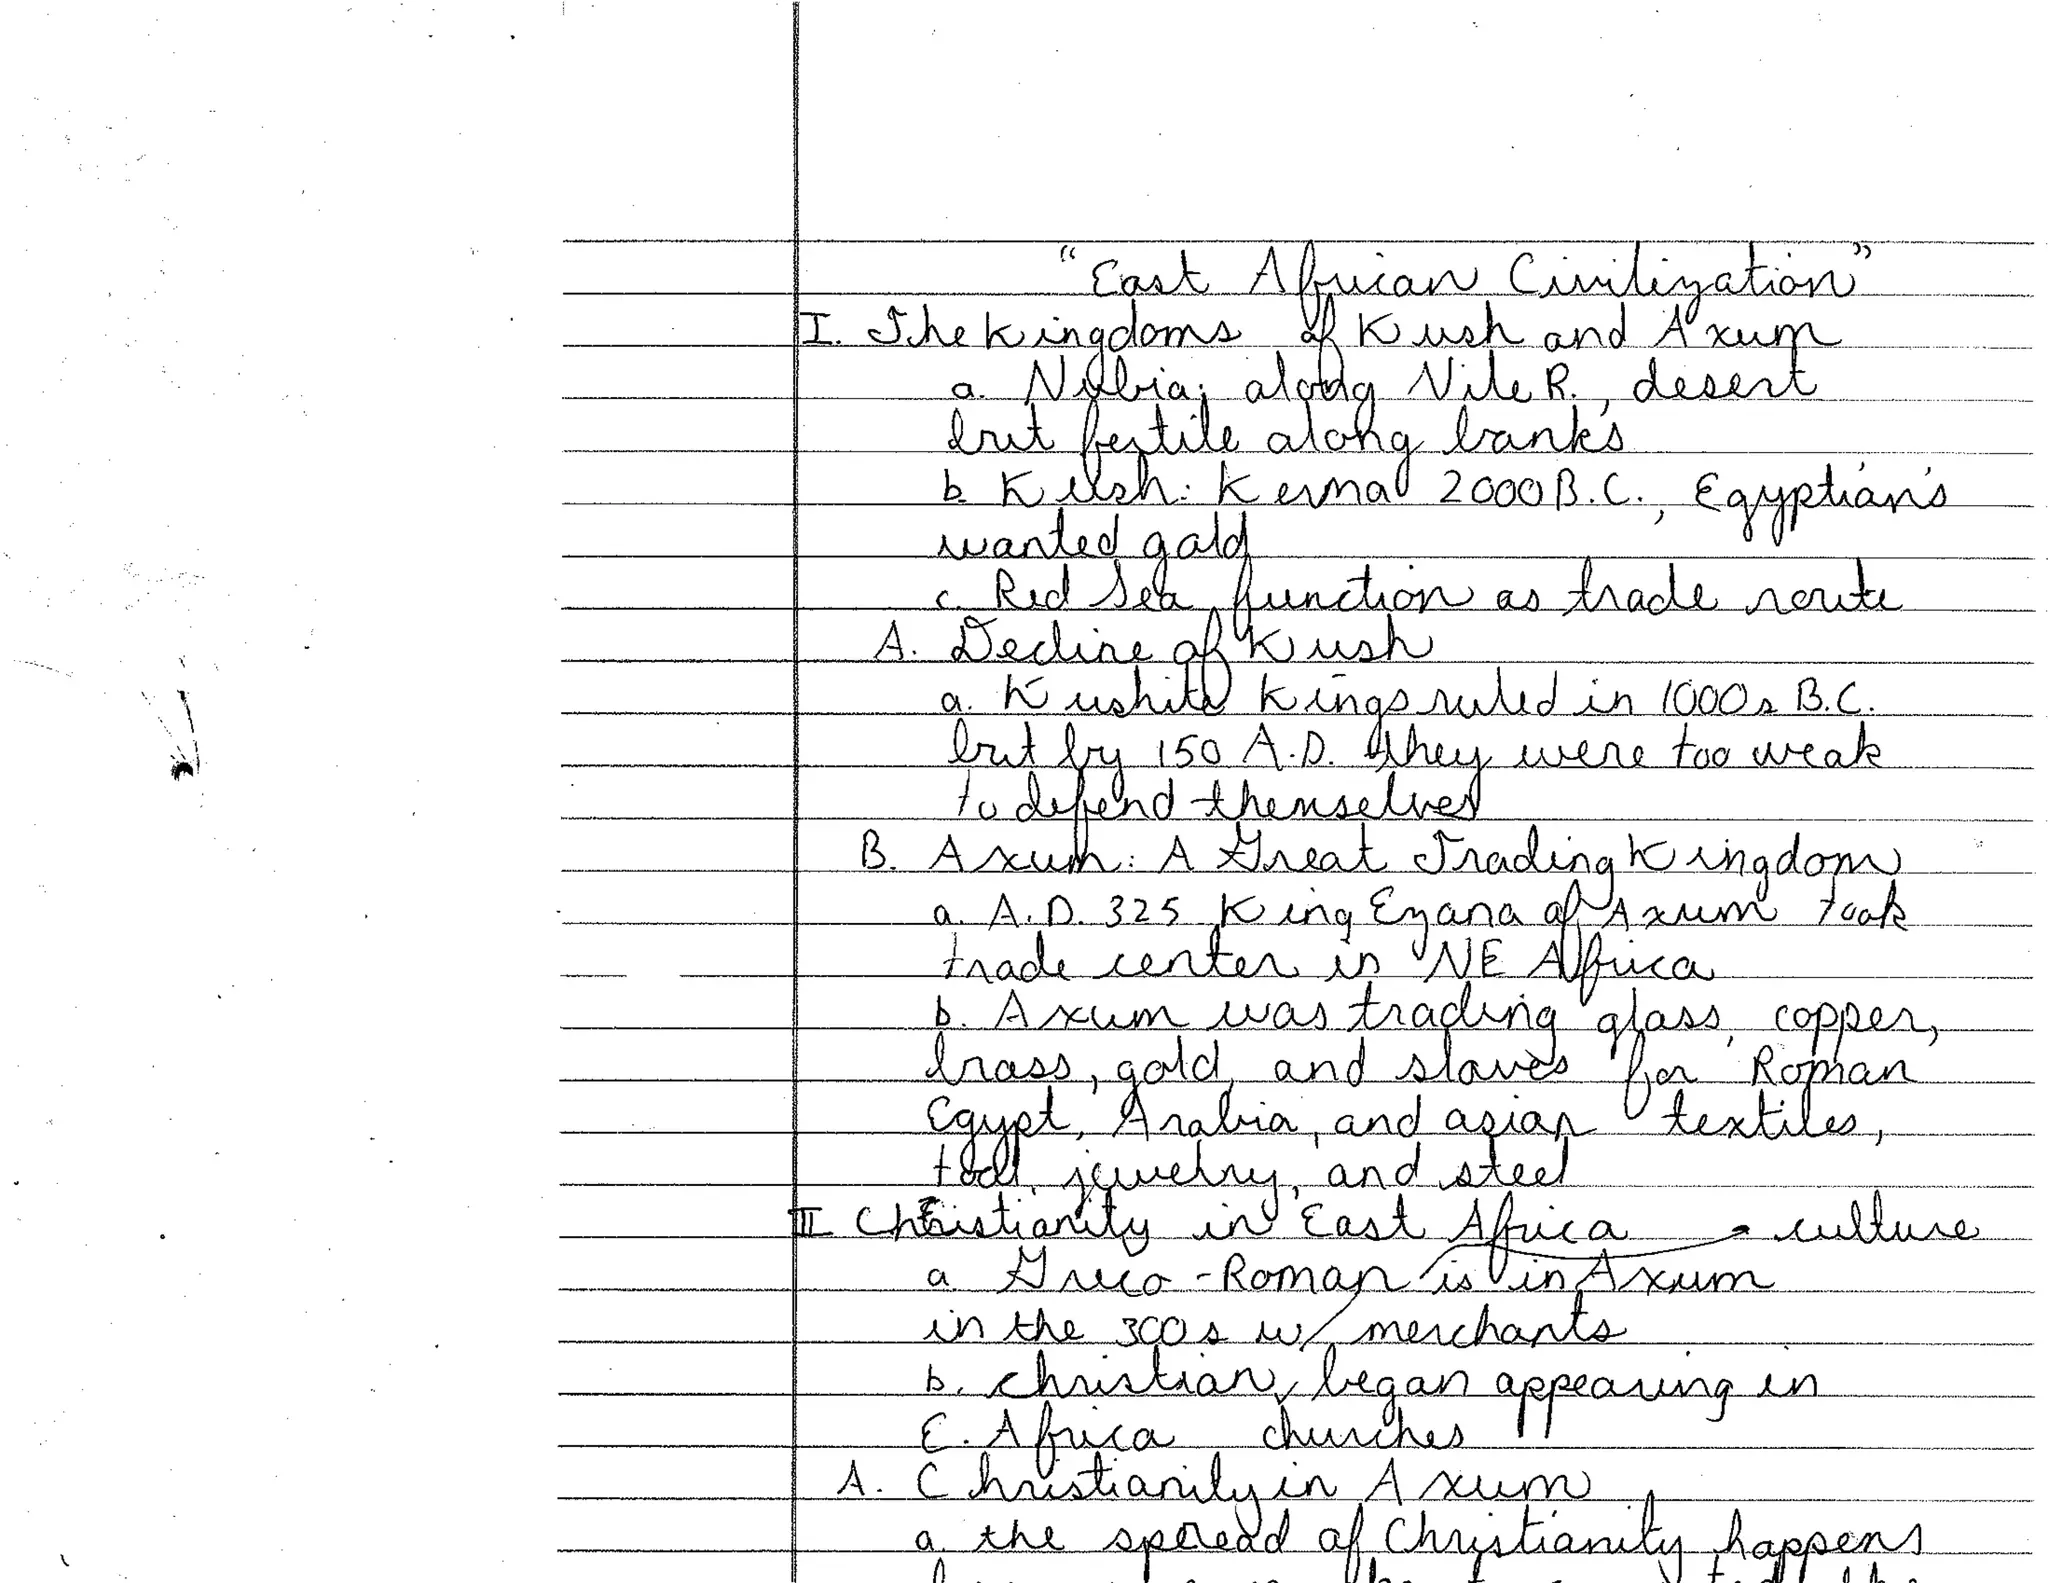 "East African Civilization"
I. The Kingdoms of Kush and Axum
a. Nubia: along Nile R., desert
but fertile along banks
b. Kush: Kerma 2000 B.C., Egyptian's
wanted gold
c. Red Sea function as trade route
A. Decline of Kush
a. Kushite Kings ruled in 1000s B.C.
but by 150 A.D. they were too weak
to defend themselves
B. Axum: A Great Trading Kingdom
a. A.D. 325 King Ezana of Axum took
trade center in NE Africa
b. Axum was trading glass, copper,
brass, gold, and slaves for Roman
Egypt, Arabia, and asian textiles,
tool, jewelry, and steel
II Christianity in East Africa culture
a. Greco-Roman is in Axum
in the 300s w/ merchants
b. christian began appearing in
E. Africa churches
A. Christianity in Axum
a. the spread of Christianity happens